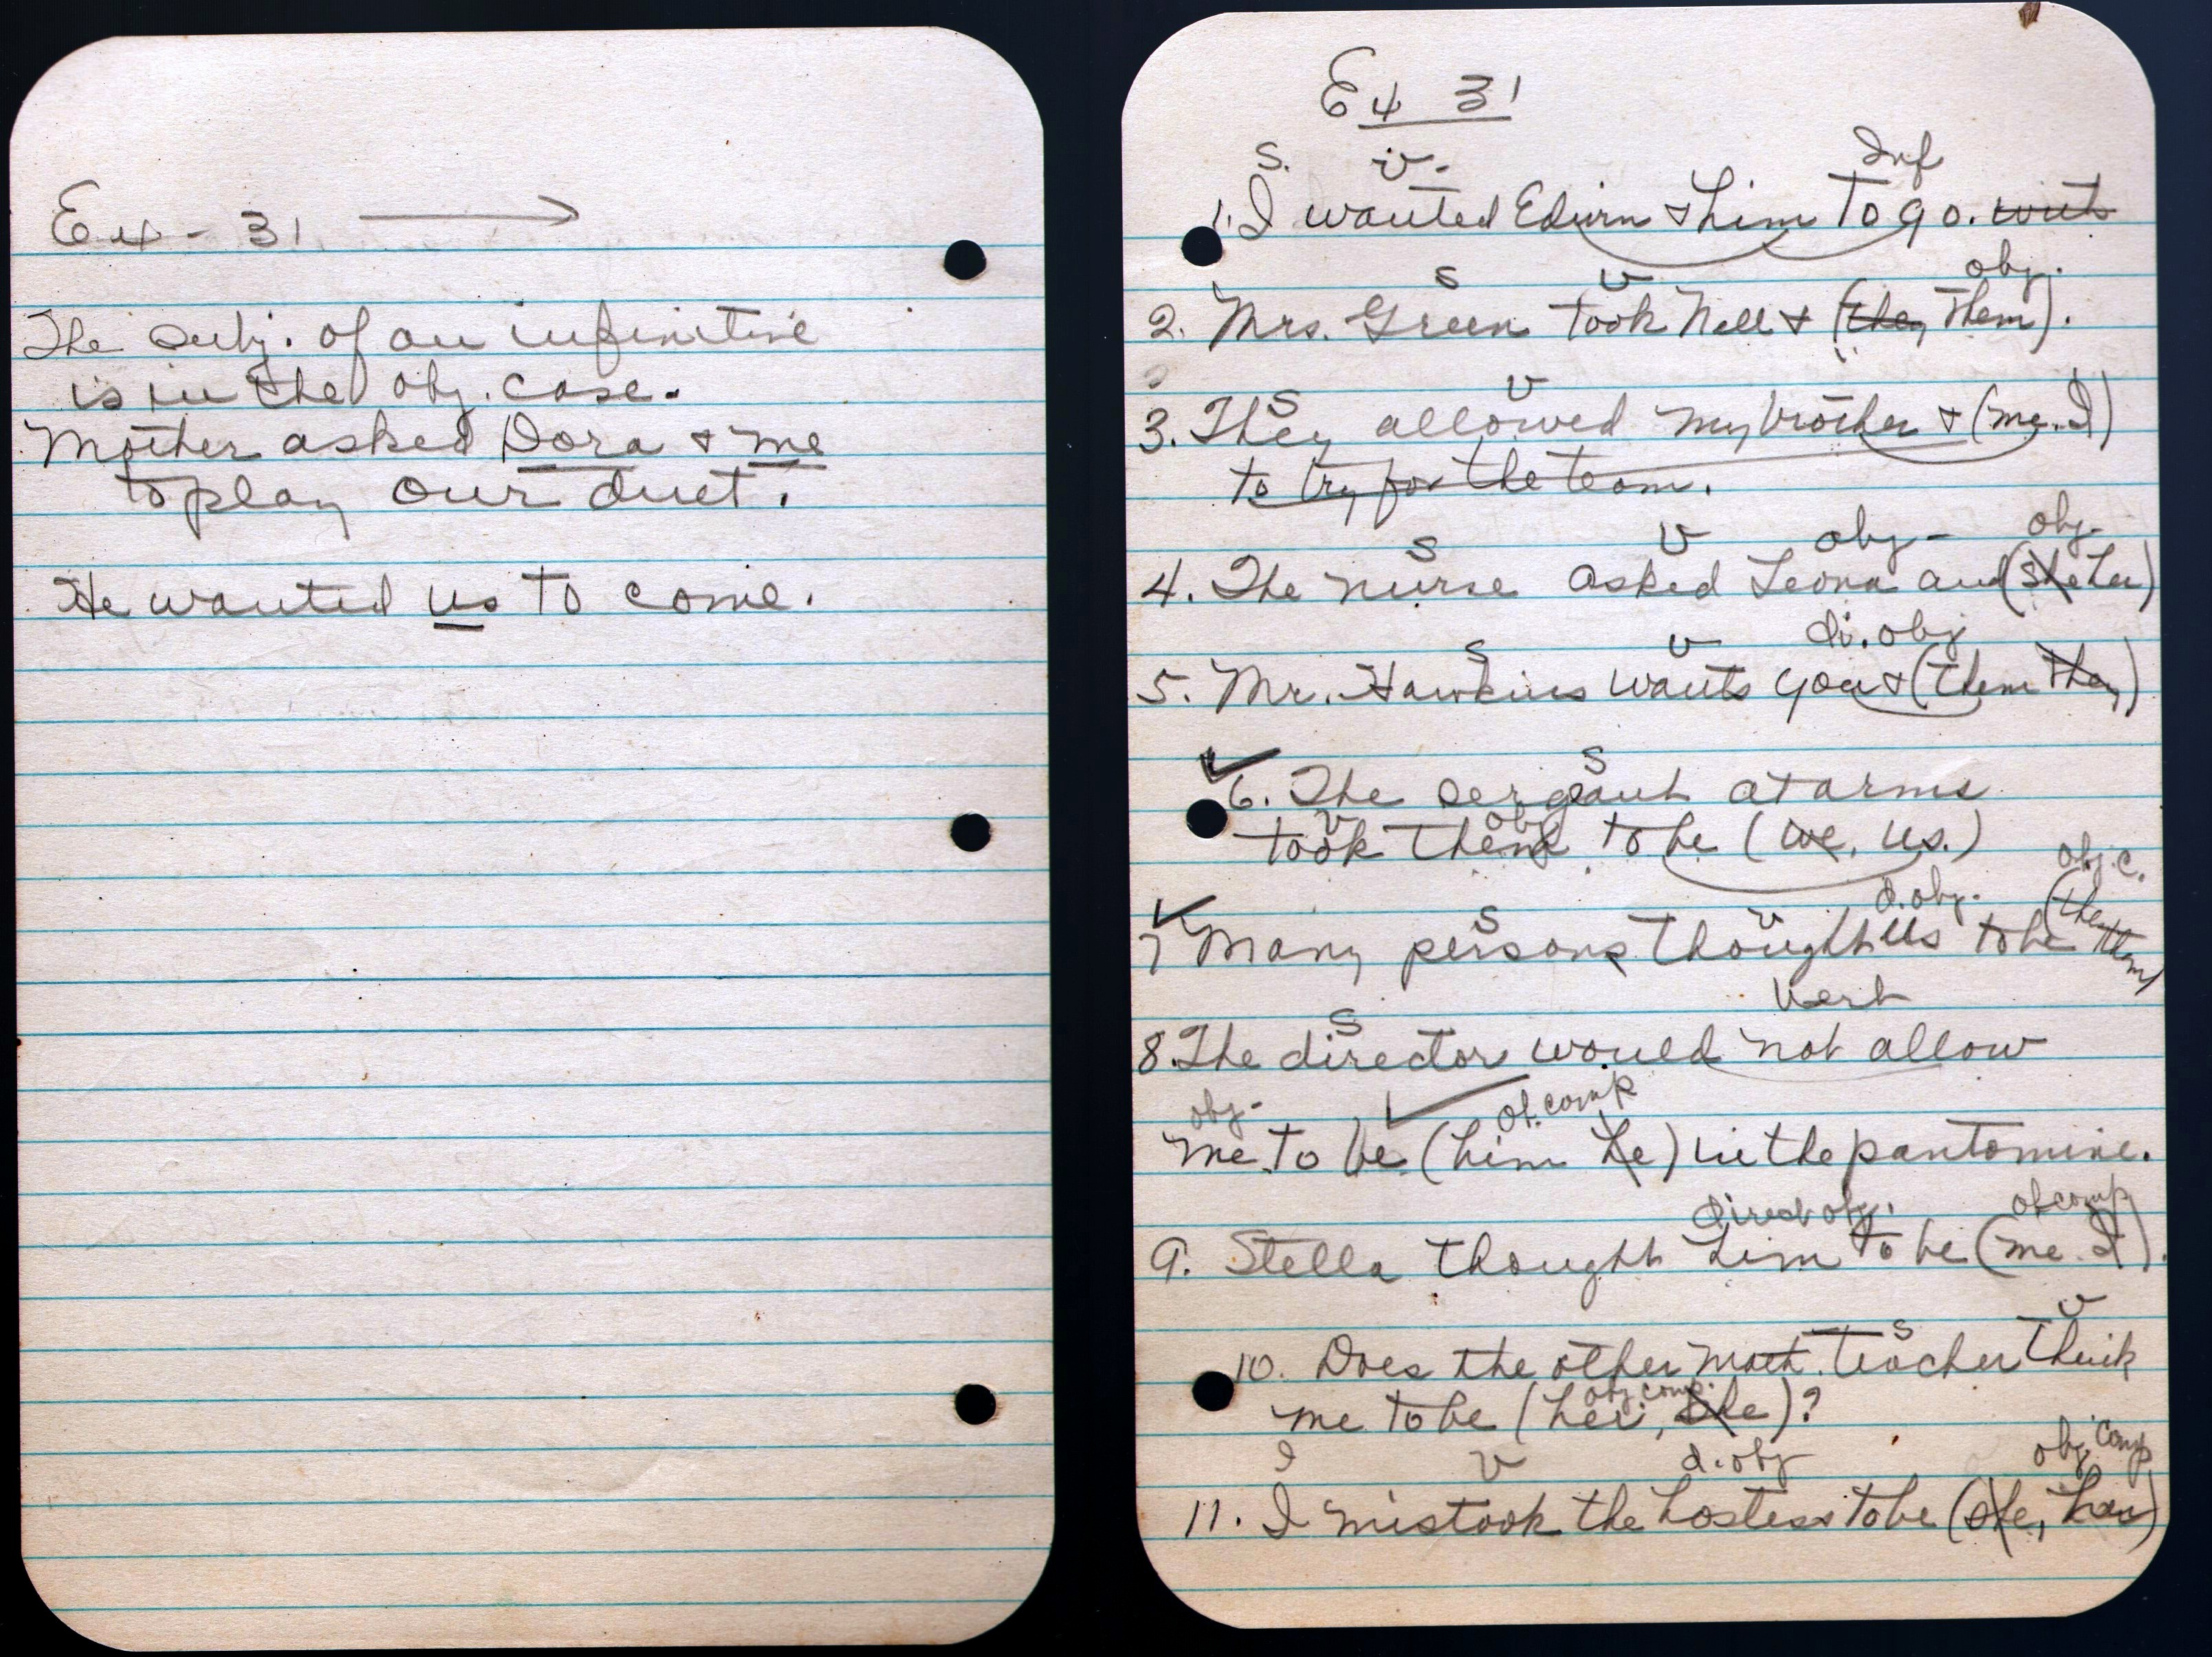 Ex - 31 →
The subj. of an infinitive
is in the obj. case.
Mother asked Dora & me
to play our duet.
He wanted us to come.
Ex 31
S. v. Inf
1. I wanted Edwin & him to go. with
S v obj.
2. Mrs. Green took Nell & (they them).
S v
3. They allowed my brother & (me. I)
to try for the team.
S v obj- obj-
4. The nurse asked Leona and (she her)
S v di. obj
5. Mr. Hawkins wants you & (them they)
S
6. The sergeant at arms
v obj
took them to be (we, us.)
S v d. obj. obj. c.
7 Many persons thought us to be (they them)
S Verb
8. The director would not allow
obj- ob. comp
me to be (him he) in the pantomine.
direct obj. ob comp
9. Stella thought him to be (me. I).
S v
10. Does the other math. teacher think
obj comp.
me to be (her, she)?
I v d. obj obj comp
11. I mistook the hostess to be (she, her)